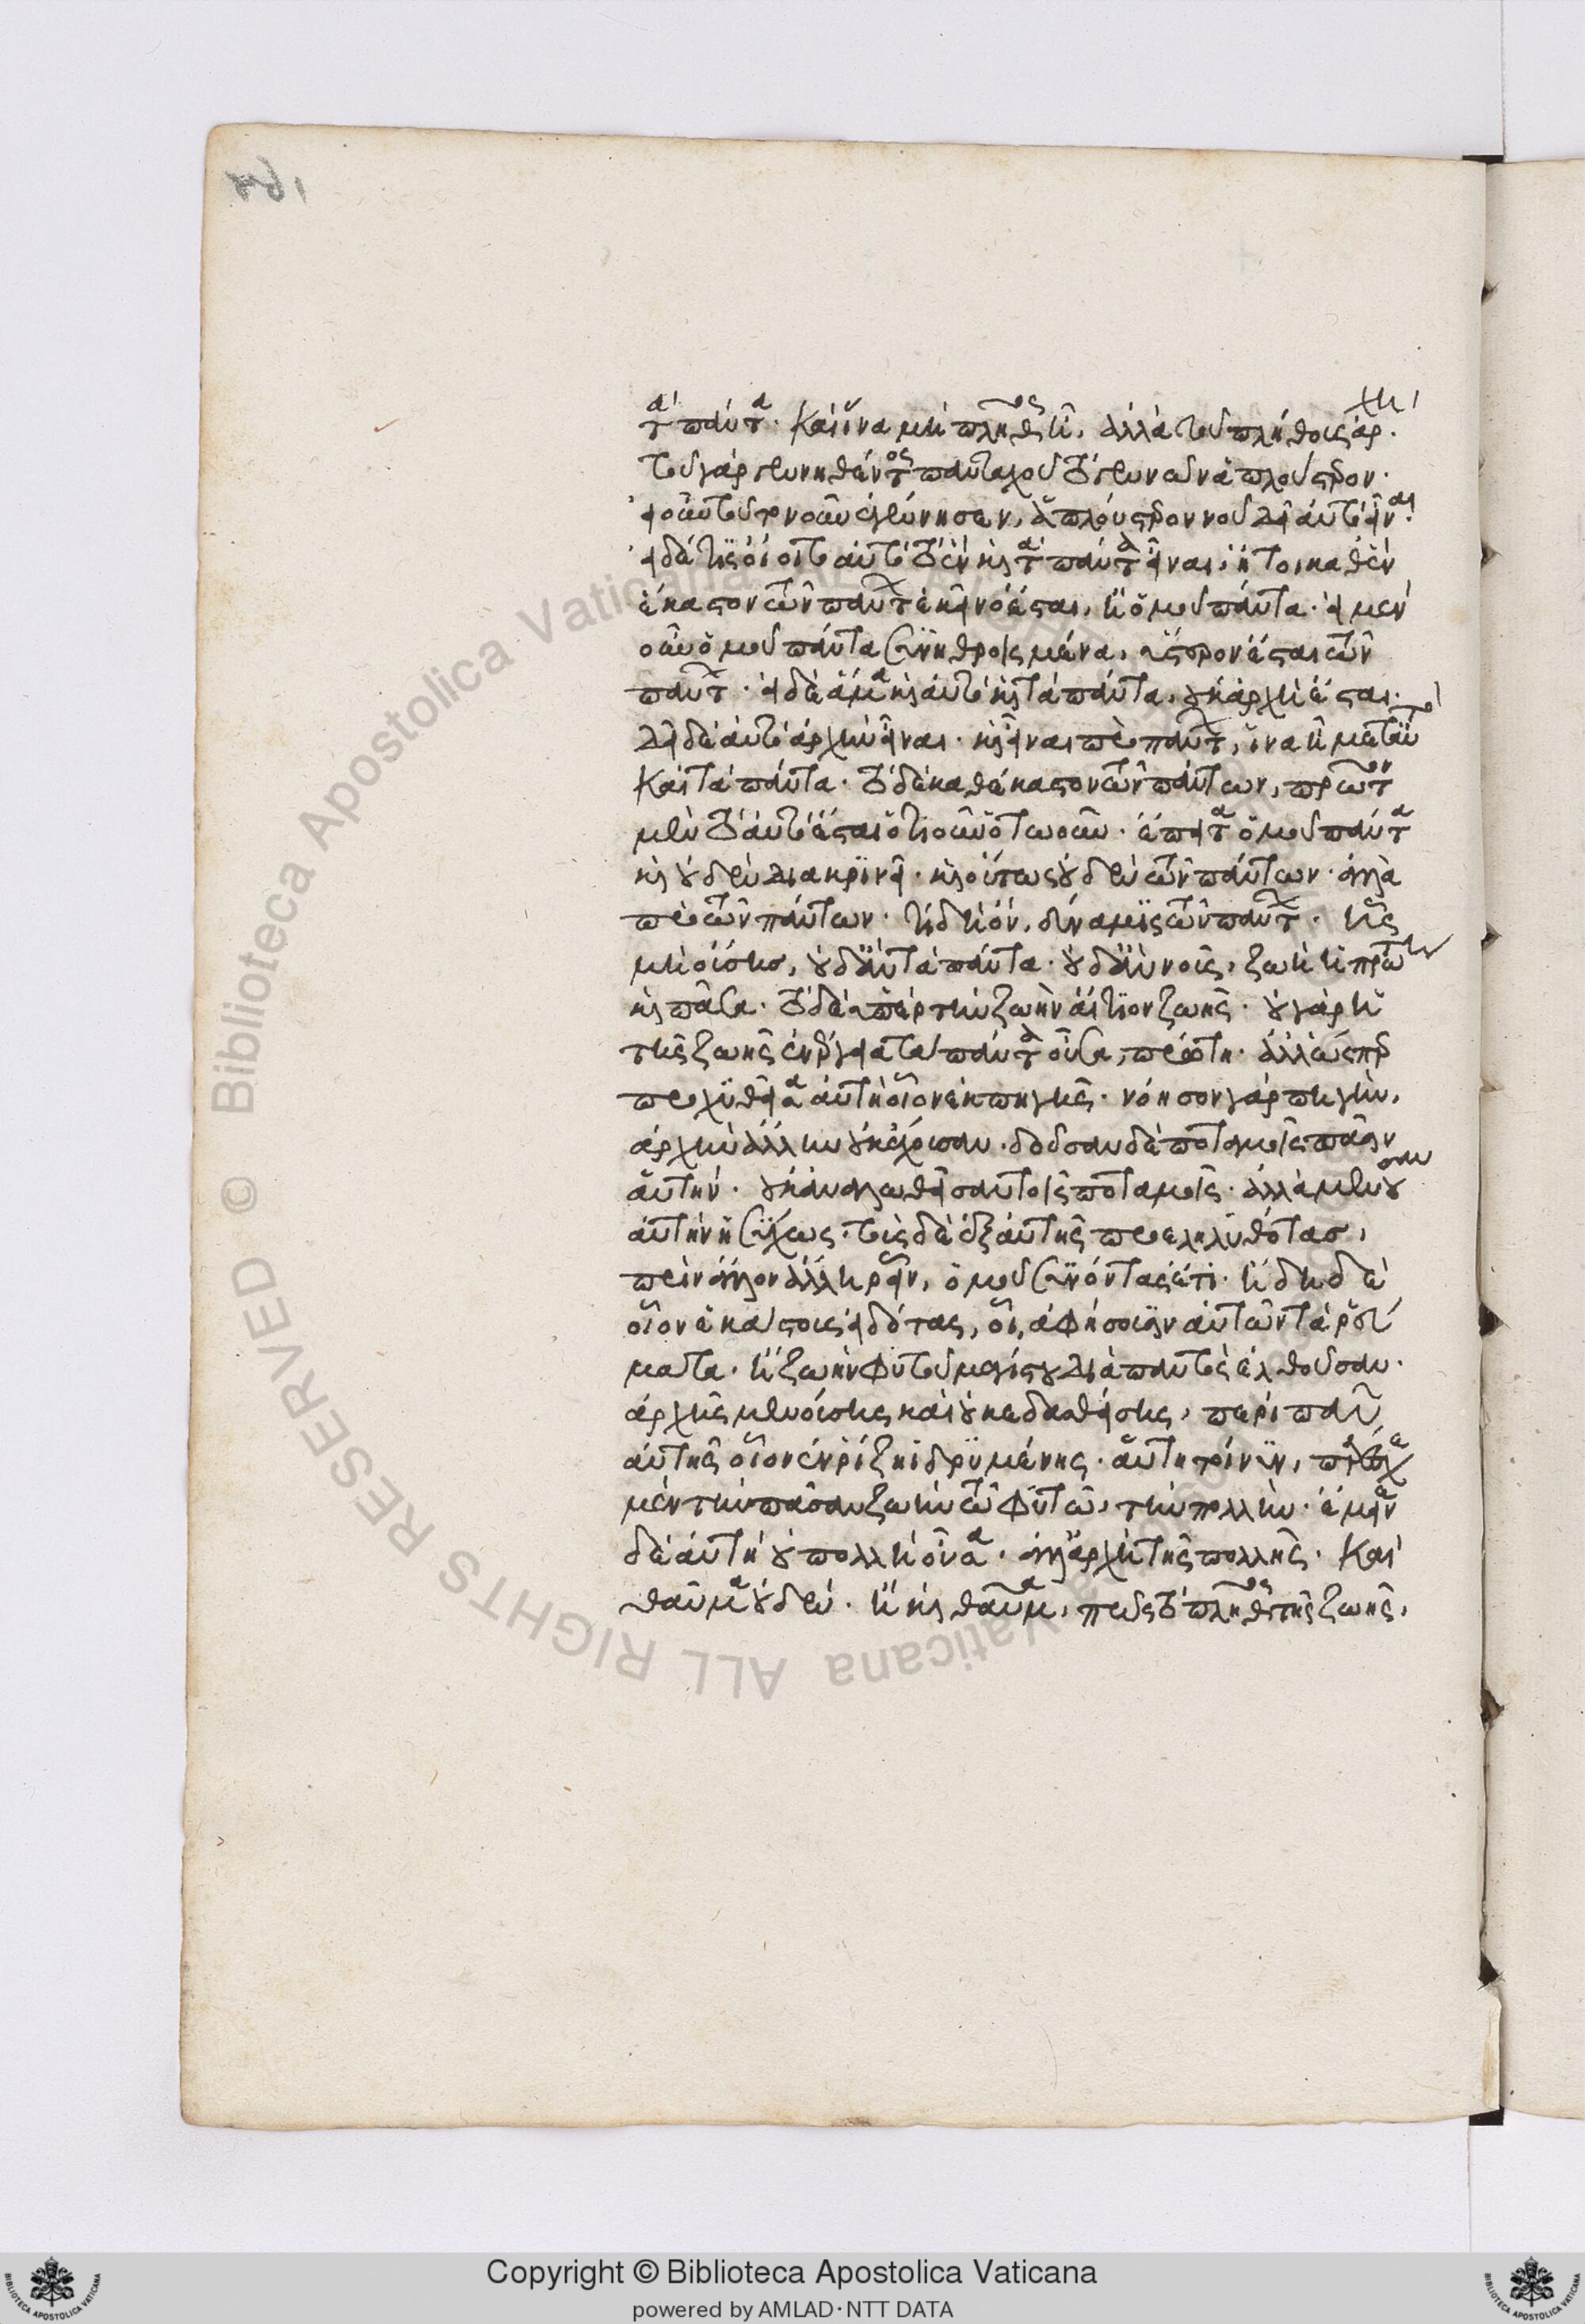 τὰ πάντα. Καὶ ἵνα μὴ πλῆθος ᾖ, ἀλλὰ τοῦ πλήθους ἀρχή·
τοῦ γὰρ γεννηθέντος πανταχοῦ τὸ γεννῶν ἁπλούστερον.
εἰ οὖν τοῦτο νοῦν ἐγέννησεν, ἁπλούστερον νοῦ δεῖ αὐτὸ εἶναι.
εἰ δέ τις οἴοιτο αὐτὸ τὸ ἓν καὶ τὰ πάντα εἶναι, ἤτοι καθ' ἓν
ἕκαστον τῶν πάντων ἐκεῖνο ἔσται, ἢ ὁμοῦ πάντα. εἰ μὲν
οὖν ὁμοῦ πάντα συνηθροισμένα, ὕστερον ἔσται τῶν
πάντων. εἰ δὲ ἅμα καὶ αὐτὸ καὶ τὰ πάντα, οὐκ ἀρχὴ ἔσται.
δεῖ δὲ αὐτὸ ἀρχὴν εἶναι. καὶ εἶναι πρὸ πάντων, ἵνα ᾖ μετ' αὐτὸ
καὶ τὰ πάντα. τὸ δὲ καθ' ἕκαστον τῶν πάντων, πρῶτον
μὲν τὸ αὐτὸ ἔσται ὁτιοῦν ὁτωοῦν. ἔπειτα ὁμοῦ πάντα
καὶ οὐδὲν διακρινεῖ. καὶ οὕτως οὐδὲν τῶν πάντων. ἀλλὰ
πρὸ τῶν πάντων. τί δὴ ὄν, δύναμις τῶν πάντων. ἧς
μὴ οὔσης, οὐδ' ἂν τὰ πάντα. οὐδ' ἂν νοῦς, ζωὴ ἡ πρώτη
καὶ πᾶσα. τὸ δὲ ὑπὲρ τὴν ζωὴν αἴτιον ζωῆς. οὐ γὰρ ἡ
τῆς ζωῆς ἐνέργεια τὰ πάντα οὖσα, πρώτη. ἀλλ' ὥσπερ
προχυθεῖσα αὐτὴ οἷον ἐκ πηγῆς. νόησον γὰρ πηγὴν,
ἀρχὴν ἄλλην οὐκ ἔχουσαν. δοῦσαν δὲ ποταμοῖς πᾶσιν
αὑτήν. οὐκ ἀναλωθεῖσαν τοῖς ποταμοῖς. ἀλλὰ μένουσαν
αὐτὴν ἡσύχως. τοὺς δὲ ἐξ αὐτῆς προεληλυθότας,
πρὶν ἄλλον ἄλλῃ ῥεῖν, ὁμοῦ συνόντας ἔτι. ἤδη δὲ
οἷον ἑκάστους εἰδότας, οἷ, ἀφήσουσιν αὐτῶν τὰ ῥεύ
ματα. ἢ ζωὴν φυτοῦ μεγίστου διὰ παντὸς ἐλθοῦσαν.
ἀρχῆς μενούσης καὶ οὐ σκεδασθείσης, περὶ πᾶν
αὐτῆς οἷον ἐν ῥίζῃ ἱδρυμένης. αὕτη τοίνυν, παρέσχε
μὲν τὴν πᾶσαν ζωὴν τῷ φυτῷ, τὴν πολλήν. ἔμεινε
δὲ αὐτὴ οὐ πολλὴ οὖσα. ἀλλ' ἀρχὴ τῆς πολλῆς. Καὶ
θαῦμα οὐδέν. ἢ καὶ θαῦμα, πῶς τὸ πλῆθος τῆς ζωῆς,
Biblioteca Apostolica Vaticana ALL RIGHTS RESERVED ©
Copyright © Biblioteca Apostolica Vaticana
powered by AMLAD·NTT DATA